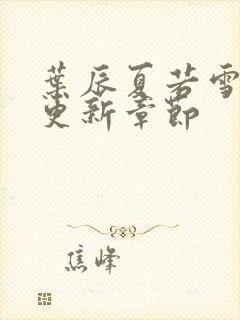 葉辰夏若雪
更新章節
焦峰